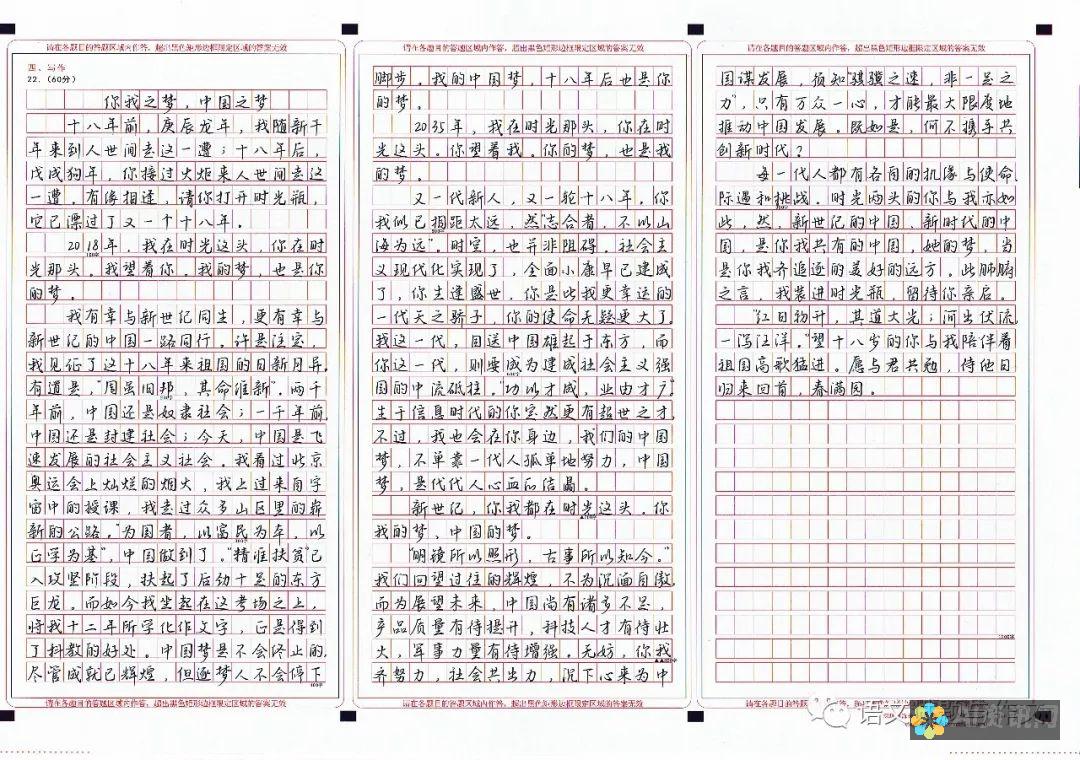 请在各题目的答题区域内作答，超出黑色矩形边框限定区域的答案无效
四、写作
22.（60分）
你我之梦，中国之梦
十八年前，庚辰龙年，我随新千
年来到人世间走这一遭；十八年后，
戊戌狗年，你接过火炬来人世间走这
一遭。有缘相逢，请你打开时光瓶，
它已漂过了又一个十八年。
2018年，我在时光这头，你在时
光那头。我望着你。我的梦，也是你
的梦。
我有幸与新世纪同生，更有幸与
新世纪的中国一路同行。许是注定，
我见证了这十八年来祖国的日新月异。
有道是，“周虽旧邦，其命维新”。两千
年前，中国还是奴隶社会；一千年前，
中国还是封建社会；今天，中国是飞
速发展的社会主义社会。我看过北京
奥运会上灿烂的烟火，我上过来自宇
宙中的授课，我走过众多山区里的崭
新的公路。“为国者，以富民为本，以
正学为基”，中国做到了。“精准扶贫”已
入攻坚阶段，扶起了后劲十足的东方
巨龙。而如今我坐起在这考场之上，
将我十二年所学化作文字，正是得到
了科教的好处。中国梦是不会终止的。
尽管成就已辉煌，但逐梦人不会停下
请在各题目的答题区域内作答，超出黑色矩形边框限定区域的答案无效
请在各题目的答题区域内作答，超出黑色矩形边框限定区域的答案无效
脚步。我的中国梦，十八年后也是你
的梦。
2035年，我在时光那头，你在时
光这头。你望着我。你的梦，也是我
的梦。
又一代新人，又一轮十八年。你
我似已相距太远，然“志合者，不以山
海为远”。时空，也并非阻碍。社会主
义现代化实现了，全面小康早已建成
了，你生逢盛世，你是比我更幸运的
一代天之骄子，你的使命无疑更大了。
我这一代，目送中国雄起于东方，而
你这一代，则要成为建成社会主义强
国的中流砥柱。“功以才成，业由才广”。
生于信息时代的你定然更有超世之才。
不过，我也会在你身边，我们的中国
梦，不单靠一代人孤单地努力，中国
梦，是代代人心血所结晶。
新世纪，你我都在时光这头。你
我的梦、中国的梦。
“明镜所以照形，古事所以知今。”
我们回望过往的辉煌，不为沉湎自傲，
而为展望未来。中国尚有诸多不足，
产品质量有待提升，科技人才有待壮
大，军事力量有待增强。无妨，你我
齐努力，社会共出力，沉下心来为中
请在各题目的答题区域内作答，超出黑色矩形边框限定区域的答案无效
请在各题目的答题区域内作答，超出黑色矩形边框限定区域的答案无效
国谋发展，须知“骐骥之速，非一足之
力”，只有万众一心，才能最大限度地
推动中国发展。既如是，何不携手共
创新时代？
每一代人都有各自的机缘与使命、
际遇和挑战。时光两头的你与我亦如
此，然，新世纪的中国、新时代的中
国，是你我共有的中国，她的梦，当
是你我齐追逐的美好的远方。此肺腑
之言，我装进时光瓶，留待你亲启。
“红日初升，其道大光；河出伏流，
一泻汪洋。”望十八岁的你与我陪伴着
祖国高歌猛进。愿与君共勉，待他日
归来回首，春满园。
请在各题目的答题区域内作答，超出黑色矩形边框限定区域的答案无效
语文